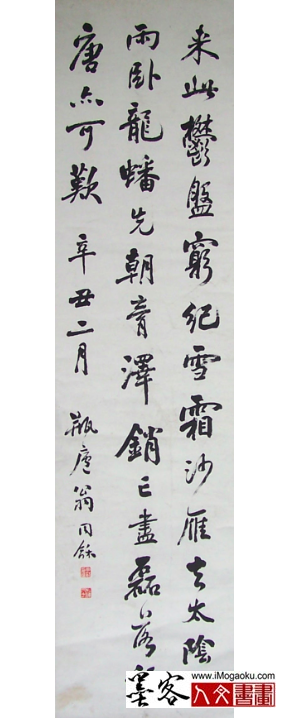 来此鬱盤窮紀雪霜沙雁去太陰
雨卧龍蟠先朝膏澤銷已盡磊落
唐亦可歎 辛丑二月 瓶廬翁同龢
墨客
www.iMogaoku.com
人文書畫